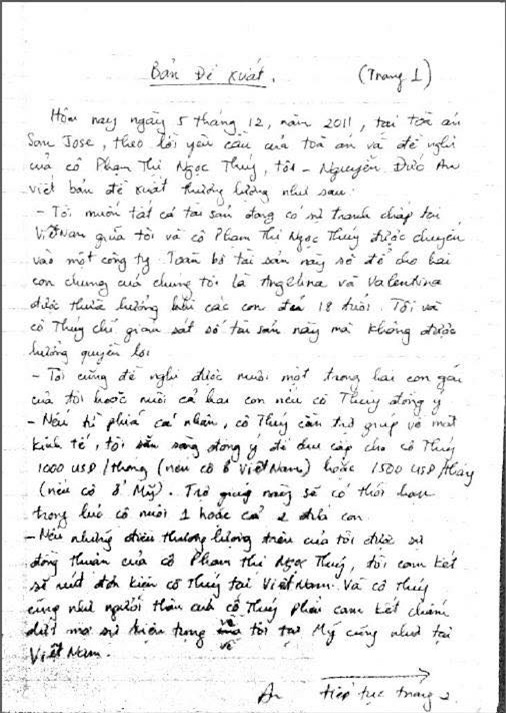 Bản Đề xuất. (Trang 1)
Hôm nay ngày 5 tháng 12, năm 2011, tại toà án
San Jose, theo lời yêu cầu của toà án và đề nghị
của cô Phạm Thị Ngọc Thúy, tôi - Nguyễn Đức An
viết bản đề xuất thương lượng như sau:
- Tôi muốn tất cả tài sản đang có sự tranh chấp tại
Việt Nam giữa tôi và cô Phạm Thị Ngọc Thúy được chuyển
vào một công ty. Toàn bộ tài sản này sẽ để cho hai
con chung của chúng tôi là Angelina và Valentina
được thừa hưởng khi các con đến 18 tuổi. Tôi và
cô Thúy chỉ giám sát số tài sản này mà không được
hưởng quyền lợi
- Tôi cũng đề nghị được nuôi một trong hai con gái
của tôi hoặc nuôi cả hai con nếu cô Thúy đồng ý
- Nếu vì phía cá nhân, cô Thúy cần trợ giúp về mặt
kinh tế, tôi sẵn sàng đồng ý để chu cấp cho cô Thúy
1000 USD/tháng (nếu cô ở Việt Nam) hoặc 1500 USD/tháng
(nếu cô ở Mỹ). Trợ giúp này sẽ có thời hạn
trong lúc cô nuôi 1 hoặc cả 2 đứa con
- Nếu những điều thương lượng trên của tôi được sự
đồng thuận của cô Phạm Thị Ngọc Thúy, tôi cam kết
sẽ rút đơn kiện cô Thúy tại Việt Nam. Và cô Thúy
cũng như người thân của cô Thúy phải cam kết chấm
dứt mọi sự kiện tụng về tôi tại Mỹ cũng như tại
Việt Nam.
An tiếp tục trang 2